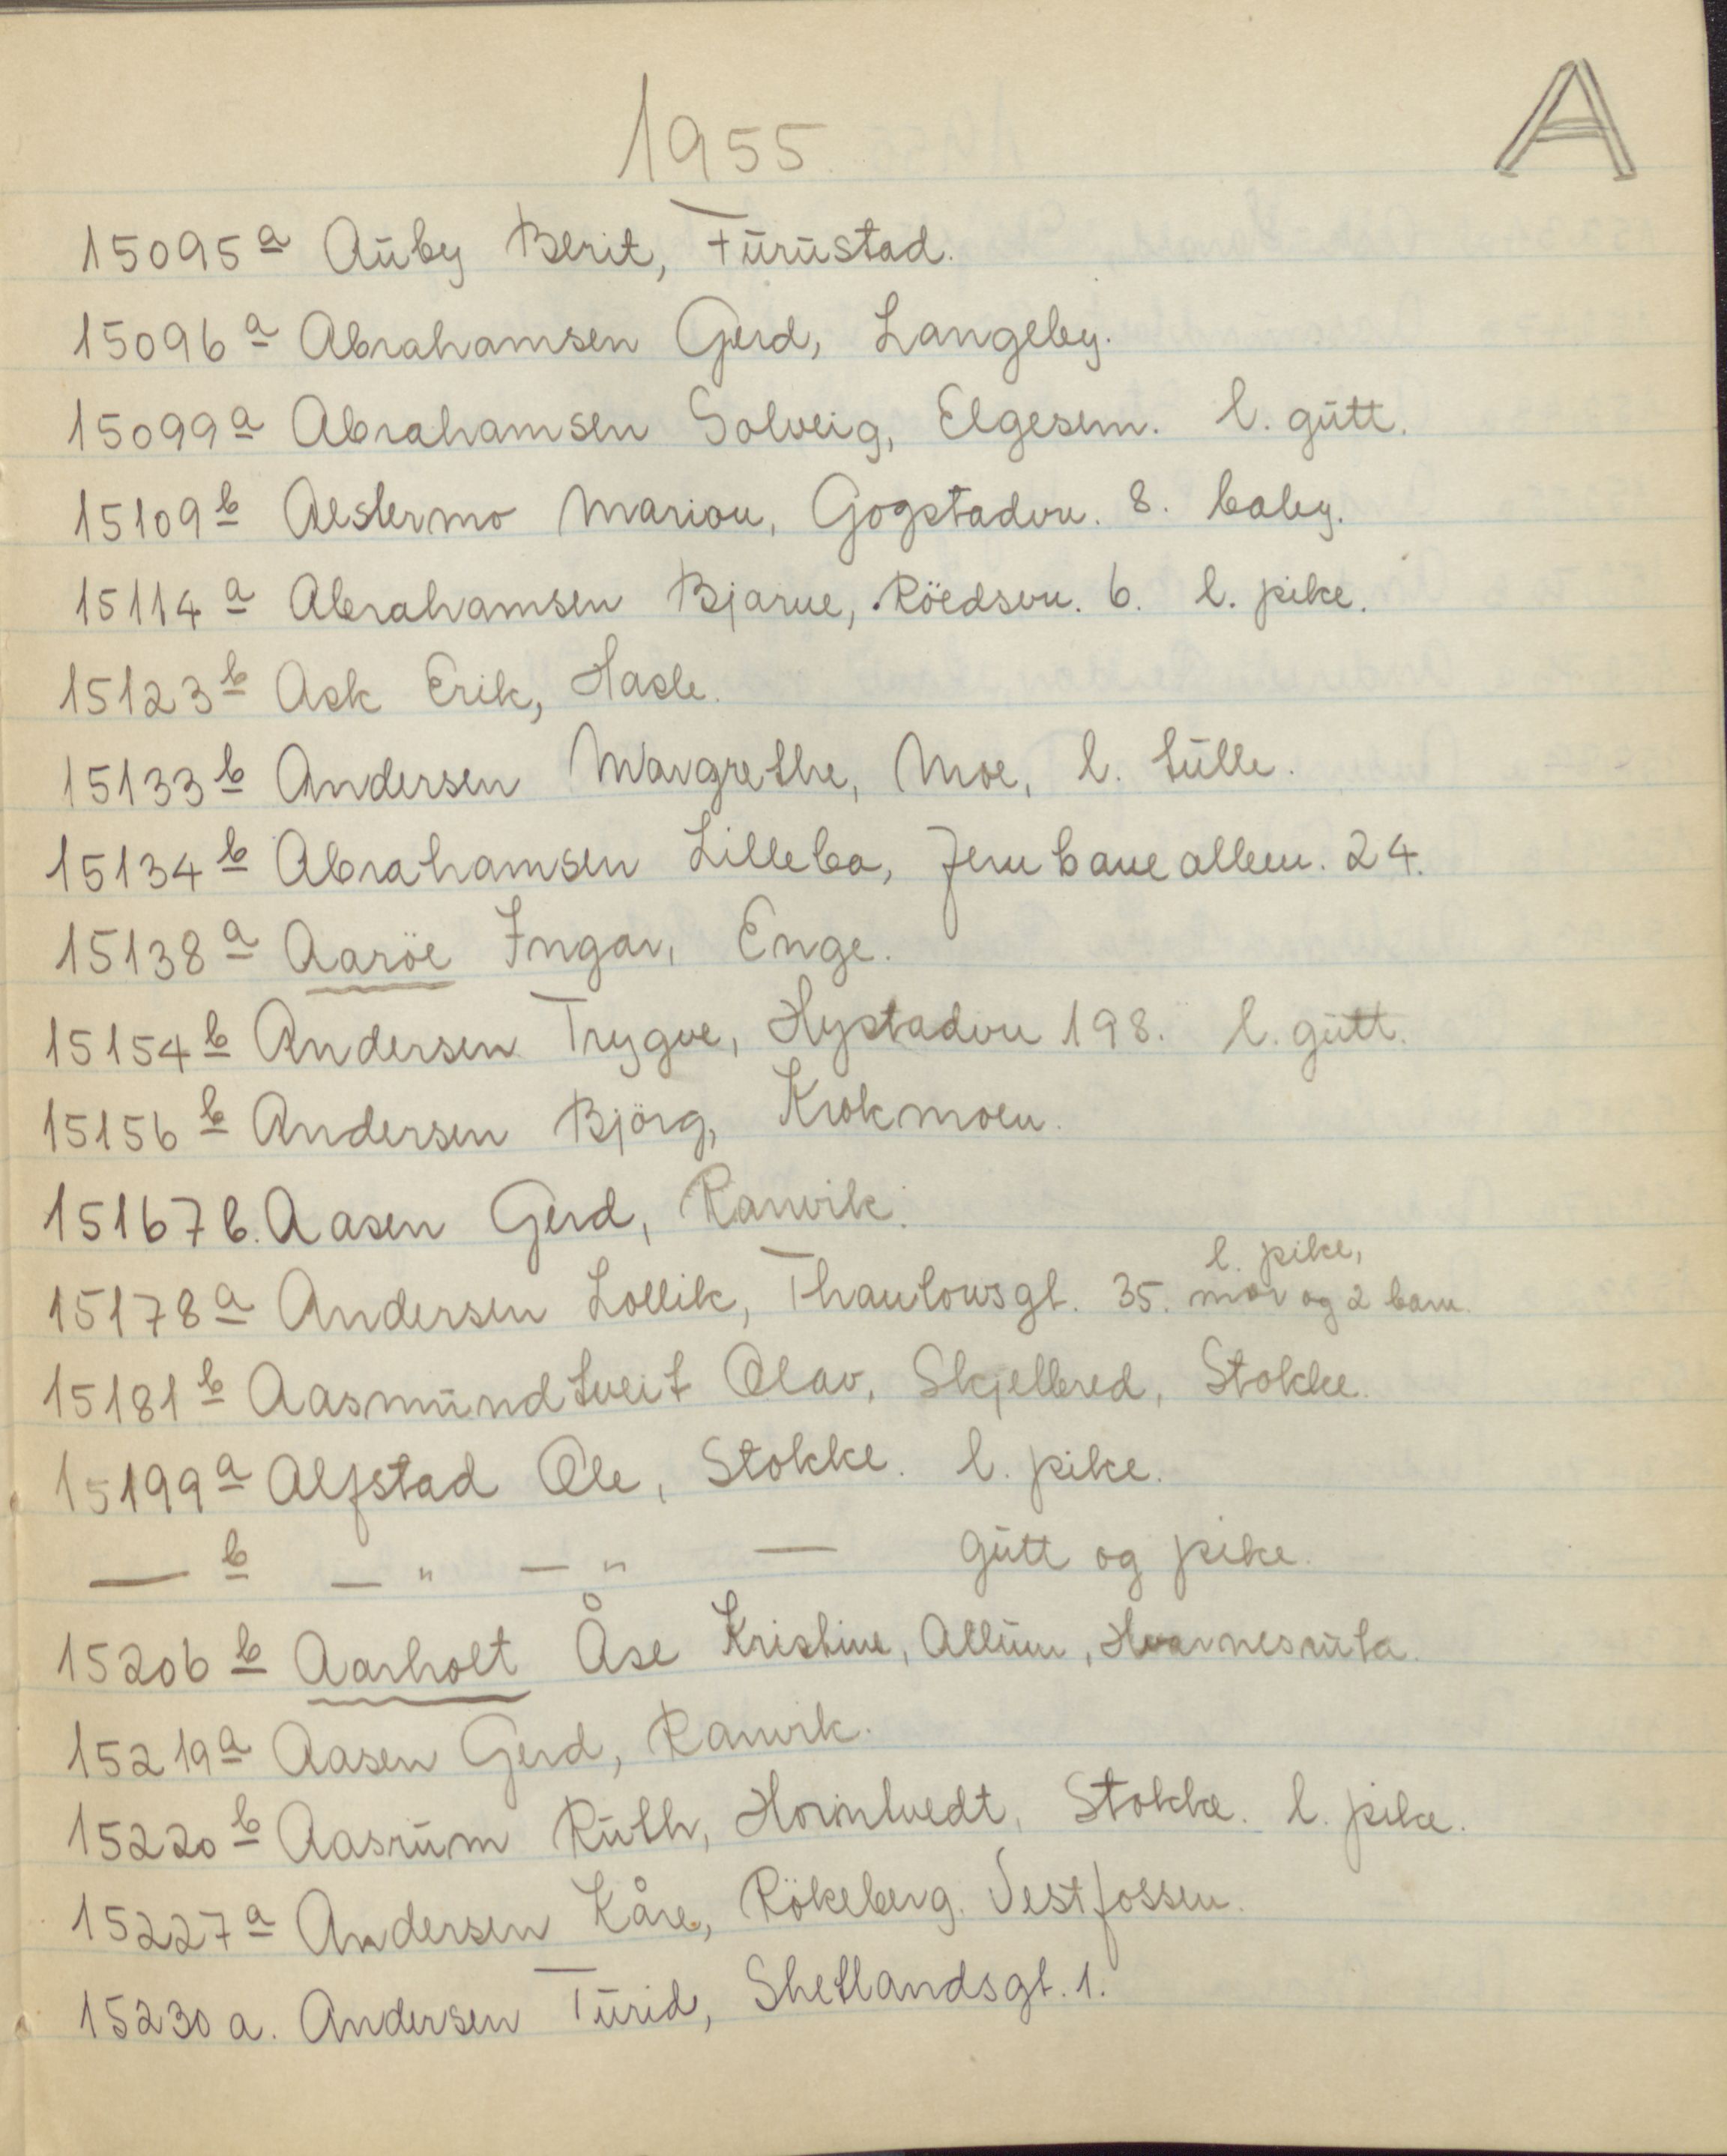 A
1955
15095 a Auby Berit, Furustad.
15096 a Abrahamsen Gerd, Langeby.
15099 a Abrahamsen Solveig, Elgesem. l. gutt.
15109 b Aestermo Marion, Gogstadvn. 8. baby.
15114 a Abrahamsen Bjarne, Röedsvn. 6. l. pike.
15123 b Ask Erik, Hasle.
15133 b Andersen Margrethe, Moe, l. tulle.
15134 b Abrahamsen Lilleba, Jernbanealleen. 24.
15138 a Aaröe Ingar, Enge.
15154 b Andersen Trygve, Hystadvn 198. l. gutt.
15156 b Andersen Björg, Krokmoen.
15167 b. Aasen Gerd, Ranvik.
l. pike,
15178 a Andersen Lollik, Thaulowsgt. 35. mor og 2 barn.
15181 b Aasmundtveit Olav, Skjelbred, Stokke.
15199 a Alfstad Ole, Stokke. l. pike.
— b — " — " — gutt og pike.
15206 b Aarholt Åse Kristine, Allum, Hvarnesruta.
15219 a Aasen Gerd, Ranvik.
15220 b Aasrum Ruth, Horntvedt, Stokke. l. pike.
15227 a Andersen Kåre, Rökeberg. Vestfossen.
15230 a. Andersen Turid, Shetlandsgt. 1.